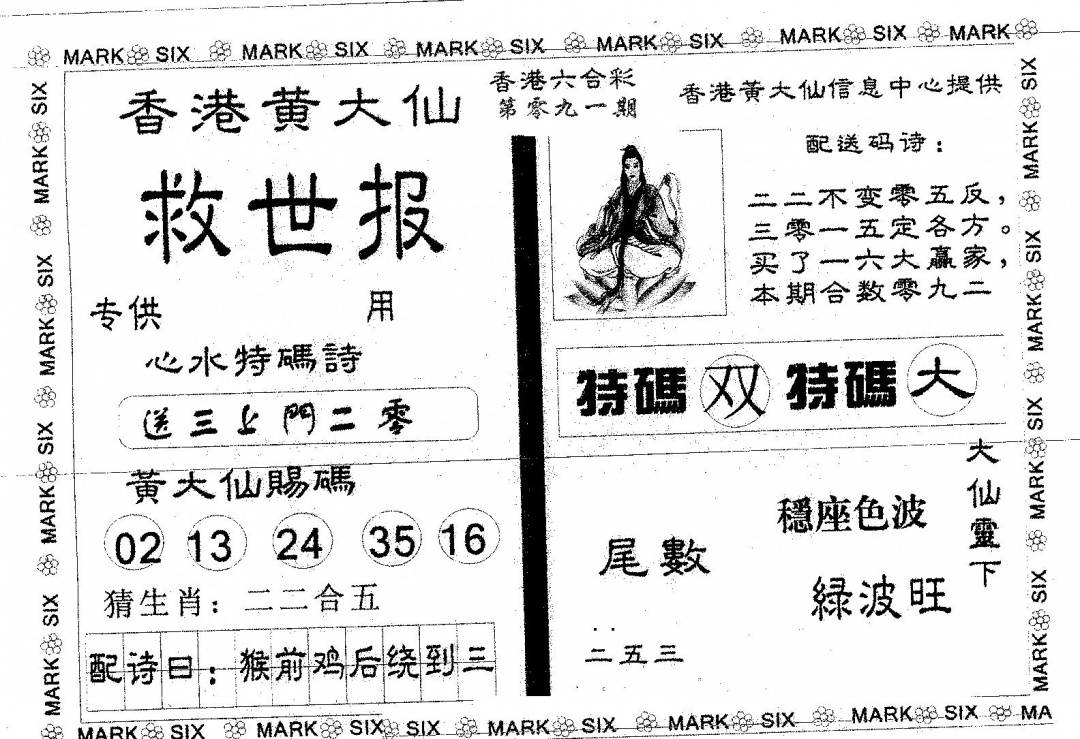 MARK SIX MARK SIX MARK SIX MARK SIX MARK SIX MARK
香港黄大仙
救世报
专供 用
心水特碼詩
送三上門二零
黃大仙賜碼
02 13 24 35 16
猜生肖：二二合五
配诗曰：猴前鸡后绕到三
香港六合彩
第零九一期
香港黄大仙信息中心提供
配送码诗：
二二不变零五反，
三零一五定各方。
买了一六大赢家，
本期合数零九二
特碼 双 特碼 大
大仙靈下
穩座色波
緑波旺
尾數
二五三
MARK SIX MARK SIX MARK SIX MARK SIX
MARK SIX MARK SIX MARK SIX MARK SIX
MARK SIX MARK SIX SIX MARK SIX MARK SIX MARK SIX MA